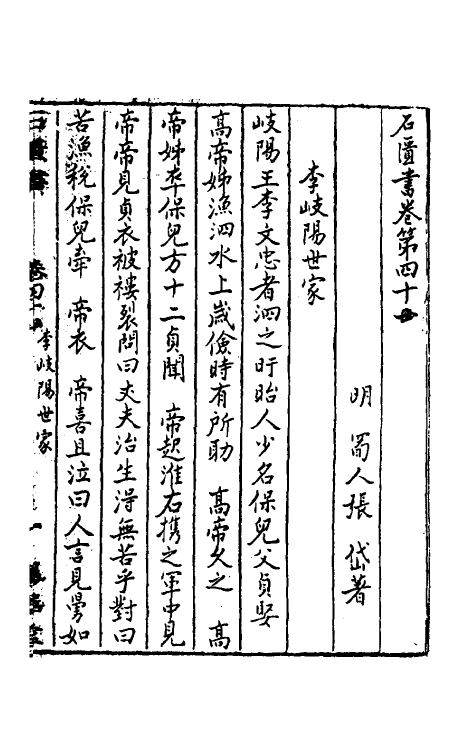 石匱書卷第四十
明 蜀人張 岱著
李岐陽世家
岐陽王李文忠者泗之盱眙人少名保兒父貞娶
高帝姊漁泗水上歲儉時有所助 高帝久之 高
帝姊卒保兒方十二貞聞 帝起淮右携之軍中見
帝帝見貞衣被褸裂問曰丈夫治生得無苦乎對曰
苦漁稅保兒牽 帝衣 帝喜且泣曰人言見舅如
李岐陽世家